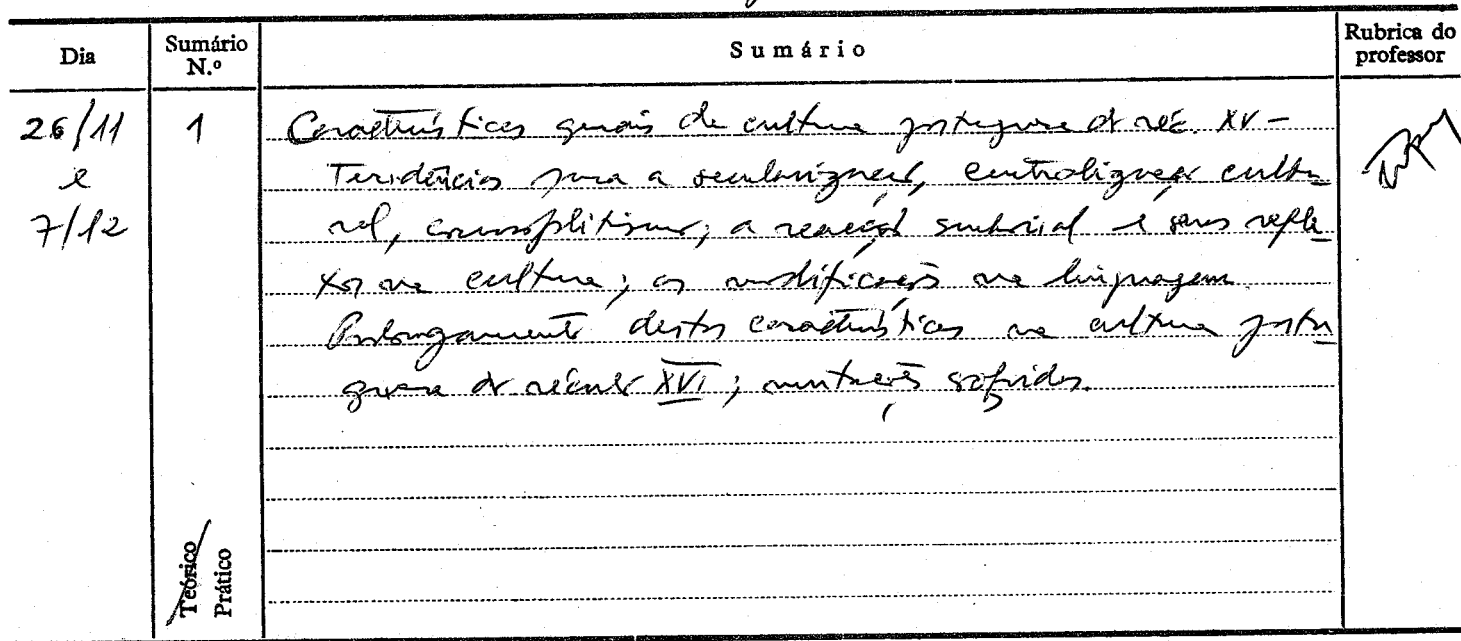 Dia
Sumário N.º
Sumário
Rubrica do professor
26/11 e 7/12
1
Características gerais da cultura portuguesa do séc. XV –
Tendências para a secularização, centralização cultu-
ral, cosmopolitismo; a reacção senhorial e seus refle-
xos na cultura; as modificações na linguagem.
Prolongamento destas características na cultura portu-
guesa do século XVI; mutações sofridas.
Teórico
Prático